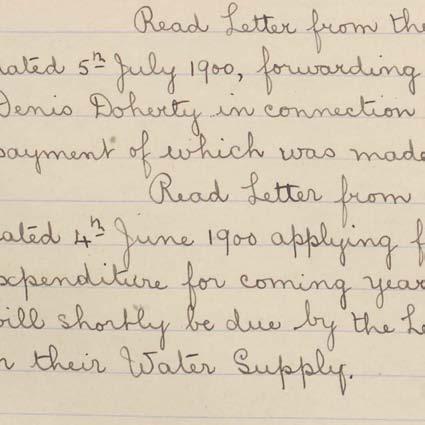 Read Letter from the
dated 5th July 1900, forwarding
Denis Doherty in connection
payment of which was made
Read Letter from
dated 4th June 1900 applying f
expenditure for coming year
will shortly be due by the Lo
n their Water Supply.